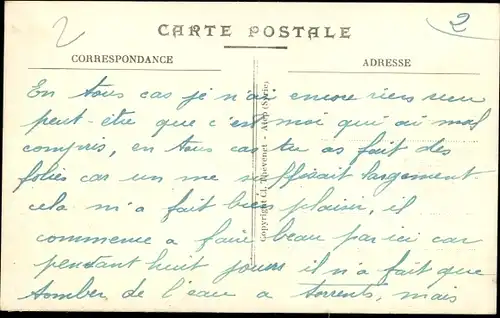 2
2
CARTE POSTALE
CORRESPONDANCE
ADRESSE
En tous cas je n'ai encore rien reçu
peut-être que c'est moi qui ai mal
compris, en tous cas tu as fait des
folies car un me suffisait largement
cela m'a fait bien plaisir, il
commence a faire beau par ici car
pendant huit jours il n'a fait que
tomber de l'eau a torrents, mais
Copyright Cl. Thévenet - Alep (Syrie)